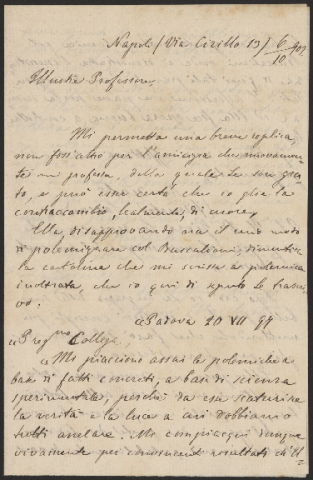 Napoli (Via Cirillo 13) 6/10 902
Illustre Professore,
Mi permetta una breve replica,
non foss'altro per l'amicizia che nuovamen-
te mi professa, della quale Le son gra-
to, e può esser certa che io gliela
contraccambio, Laltamente, di cuore.
Ella, disapprovando ora il mio modo
di polemizzare col Brusaliani dimentica
la cartolina che mi scrisse a polemica
inoltrata, che io qui di seguito Le trascri-
vo.
«Padova 20 VII 99
«Preg.mo Collega
«Mi piacciono assai le polemiche a
basi di fatti concreti, a basi di scienza
sperimentale, perché da esse scaturisce
la verità e la luce a cui dobbiamo
tutti anelare. Mi compiacqui dunque
vivamente pei concernenti resultati di Ul-